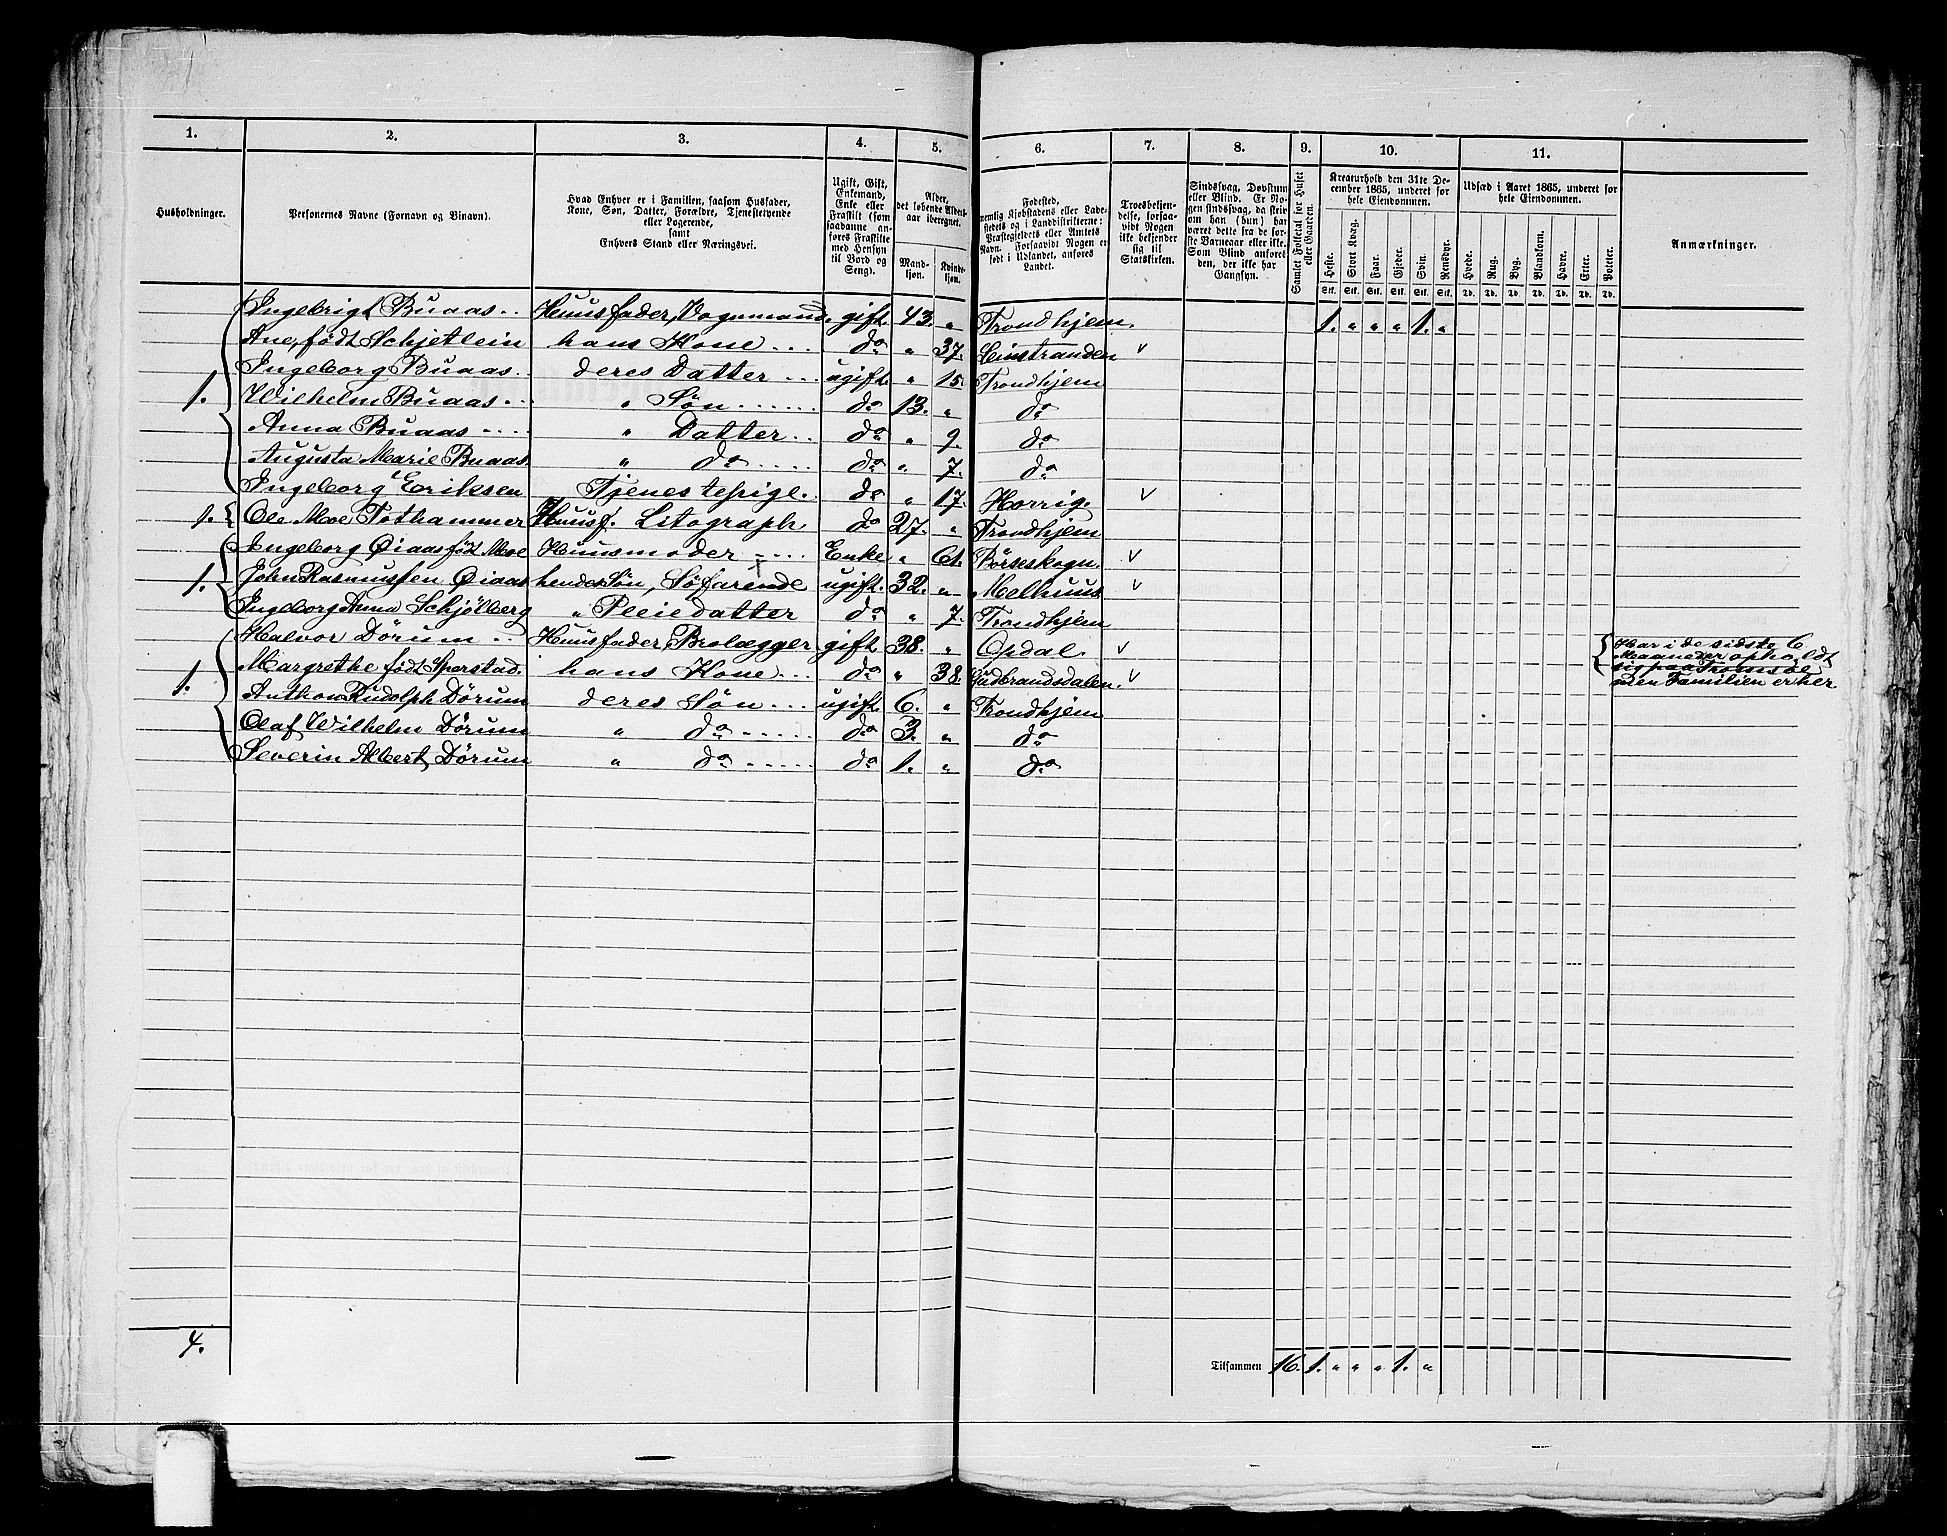 1. 2. 3. 4. 5. 6. 7. 8. 9. 10. 11.
Husholdninger.
Personernes Navne (Fornavn og Binavn).
Hvad Enhver er i Familien, saasom Husfader,
Kone, Søn, Datter, Forældre, Tjenestetyende
eller Logerende,
samt
Enhvers Stand eller Næringsvei.
Ugift, Gift,
Enkemand,
Enke eller
Fraskilt (som
saadanne an-
føres Fraskilte
med Hensyn
til Bord og
Seng).
Alder,
det løbende Alders-
aar iberegnet.
Mand-
kjøn.
Kvinde-
kjøn.
Fødested,
nemlig Kjøbstadens eller Lade-
stedets og i Landdistrikterne:
Præstegjeldets eller Amtets
Navn. Forsaavidt Nogen er
født i Udlandet, anføres
Landet.
Troesbekjen-
delse, forsaa-
vidt Nogen
ikke bekjender
sig til
Statskirken.
Sindssvag, Døvstum
eller Blind. Er No-
gen sindssvag, da skriv
om han (hun) har
været dette fra de før-
ste Barneaar eller ikke.
Som Blind anføres
den, der ikke har
Gangsyn.
Samlet Folketal for Huset
eller Gaarden.
Kreaturhold den 31te De-
cember 1865, underet for
hele Eiendommen.
Heste. Stort Kvæg. Faar. Gjeder. Svin. Rensdyr.
Stk. Stk. Stk. Stk. Stk. Stk.
Udsæd i Aaret 1865, underet for
hele Eiendommen.
Hvede. Rug. Byg. Blandkorn. Havre. Erter. Poteter.
Td. Td. Td. Td. Td. Td. Td.
Anmærkninger.
Ingebrigt Buaas.. Huusfader, Vognmand. gift. 43. " Trondhjem. 1. " " " 1. "
Ane, født Schjetlein hans Kone ... do " 37. Leinstranden v
Ingeborg Buaas. deres Datter ... ugift. " 15. Trondhjem
1. Wilhelm Buaas... " Søn...... do 13. " do
Anna Buaas.... " Datter.. do " 9. do
Augusta Marie Buaas. " do..... do " 7. do
Ingeborg Eriksen Tjenestepige. do " 17. v
1. Ole Moe Huusf. Litograph do 27. " Trondhjem
Ingeborg Øiaas født Moe Huusmoder .... Enke " 61. Børseskogn. v
1. John Rasmussen Øiaas hendes Søn, Søfarende ugift. 32. " Melhuus v
Ingeborg Anna Schjølberg " Pleiedatter do " 7. Trondhjem
Halvor Dörum .. Huusfader, Brolægger gift 38. " Opdal. v Har i de sidste 6
Maaneder opholdt
sig paa Tromsø
men Familien er her
1. Margrethe født Sparstad. hans Kone... do " 38. Gudbrandsdalen. v
Anthon Rudolph Dörum deres Søn ... ugift 6. " Trondhjem
Olaf Wilhelm Dörum " do..... do 3. " do
Severin Albert Dörum " do..... do 1. " do
4. Tilsammen 16. 1. " " " 1. "